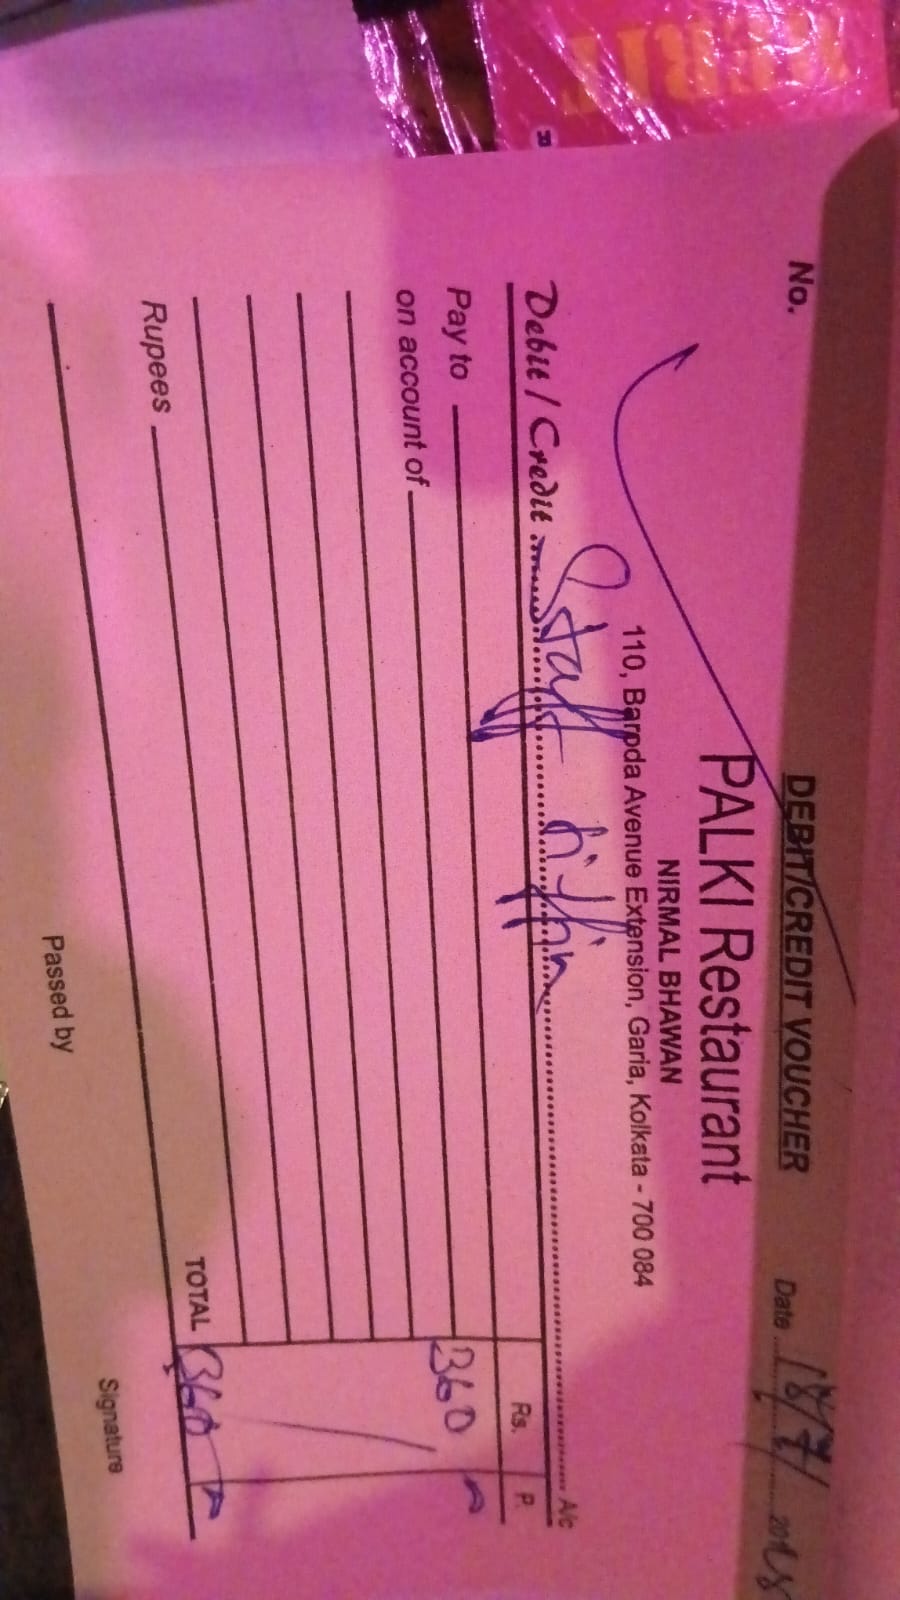 MERIT
DEBIT/CREDIT VOUCHER
No.
Date 18/7/
PALKI Restaurant
NIRMAL BHAWAN
110, Baroda Avenue Extension, Garia, Kolkata - 700 084
Debit / Credit Staff tiffin A/c
Rs. P.
Pay to 360
on account of
TOTAL 360
Rupees
Passed by
Signature